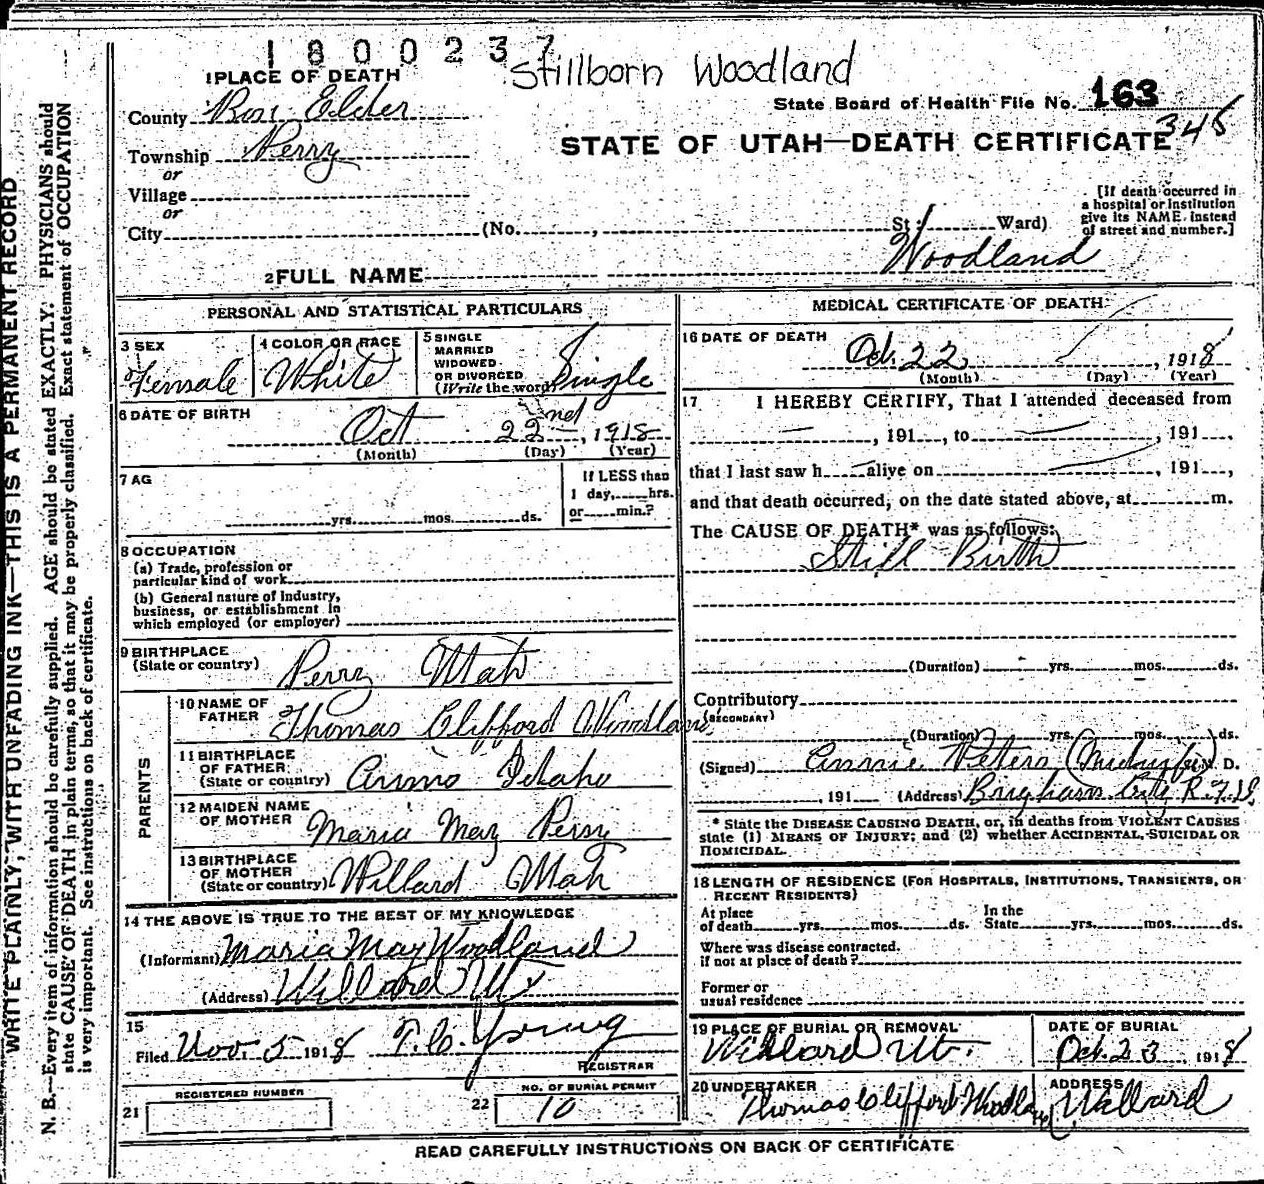 1800237
Stillborn Woodland
1 PLACE OF DEATH
State Board of Health File No. 163
345
County Box Elder
STATE OF UTAH—DEATH CERTIFICATE
Township Perry
or
Village
or
City (No. , St. Ward)
[If death occurred in
a hospital or institution
give its NAME instead
of street and number.]
2 FULL NAME Woodland
PERSONAL AND STATISTICAL PARTICULARS
3 SEX
Female
4 COLOR OR RACE
White
5 SINGLE
MARRIED
WIDOWED
OR DIVORCED
(Write the word) Single
6 DATE OF BIRTH
Oct 22nd, 1918
(Month) (Day) (Year)
7 AG
yrs. mos. ds.
If LESS than
1 day, hrs.
or min.?
8 OCCUPATION
(a) Trade, profession or
particular kind of work
(b) General nature of Industry,
business, or establishment in
which employed (or employer)
9 BIRTHPLACE
(State or country) Perry Utah
PARENTS
10 NAME OF
FATHER Thomas Clifford Woodland
11 BIRTHPLACE
OF FATHER
(State or country) Arimo Idaho
12 MAIDEN NAME
OF MOTHER Maria May Perry
13 BIRTHPLACE
OF MOTHER
(State or country) Willard Utah
14 THE ABOVE IS TRUE TO THE BEST OF MY KNOWLEDGE
(Informant) Maria May Woodland
(Address) Willard Ut
15
Filed Nov. 5 1918 T. C. Young
REGISTRAR
REGISTERED NUMBER
21
NO. OF BURIAL PERMIT
22 10
MEDICAL CERTIFICATE OF DEATH
16 DATE OF DEATH
Oct. 22, 1918
(Month) (Day) (Year)
17 I HEREBY CERTIFY, That I attended deceased from
, 191 , to , 191 ,
that I last saw h alive on , 191 ,
and that death occurred, on the date stated above, at m.
The CAUSE OF DEATH* was as follows:
Still Birth
(Duration) yrs. mos. ds.
Contributory
(SECONDARY)
(Duration) yrs. mos. ds.
(Signed) Annie Peters (Midwife) D.
, 191 (Address) Brigham City R.F.D.
* State the DISEASE CAUSING DEATH, or, in deaths from VIOLENT CAUSES
state (1) MEANS OF INJURY; and (2) whether ACCIDENTAL, SUICIDAL OR
HOMICIDAL.
18 LENGTH OF RESIDENCE (FOR HOSPITALS, INSTITUTIONS, TRANSIENTS, OR
RECENT RESIDENTS)
At place
of death yrs. mos. ds.
In the
State yrs. mos. ds.
Where was disease contracted.
if not at place of death?
Former or
usual residence
19 PLACE OF BURIAL OR REMOVAL
Willard Ut.
DATE OF BURIAL
Oct. 23, 1918
20 UNDERTAKER
Thomas Clifford Woodland
ADDRESS
Willard
READ CAREFULLY INSTRUCTIONS ON BACK OF CERTIFICATE
WRITE PLAINLY, WITH UNFADING INK—THIS IS A PERMANENT RECORD
N. B.—Every item of information should be carefully supplied. AGE should be stated EXACTLY. PHYSICIANS should
state CAUSE OF DEATH in plain terms, so that it may be properly classified. Exact statement of OCCUPATION
is very important. See instructions on back of certificate.